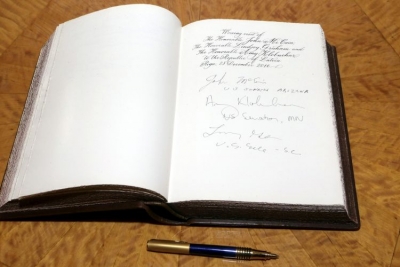 Working visit of
The Honorable John McCain
The Honorable Lindsey Graham and
The Honorable Amy Klobuchar
to the Republic of Latvia
Riga, December 2016
John McCain
U.S. Senate Arizona
Amy Klobuchar
US Senator, MN
U.S. Sen - SC